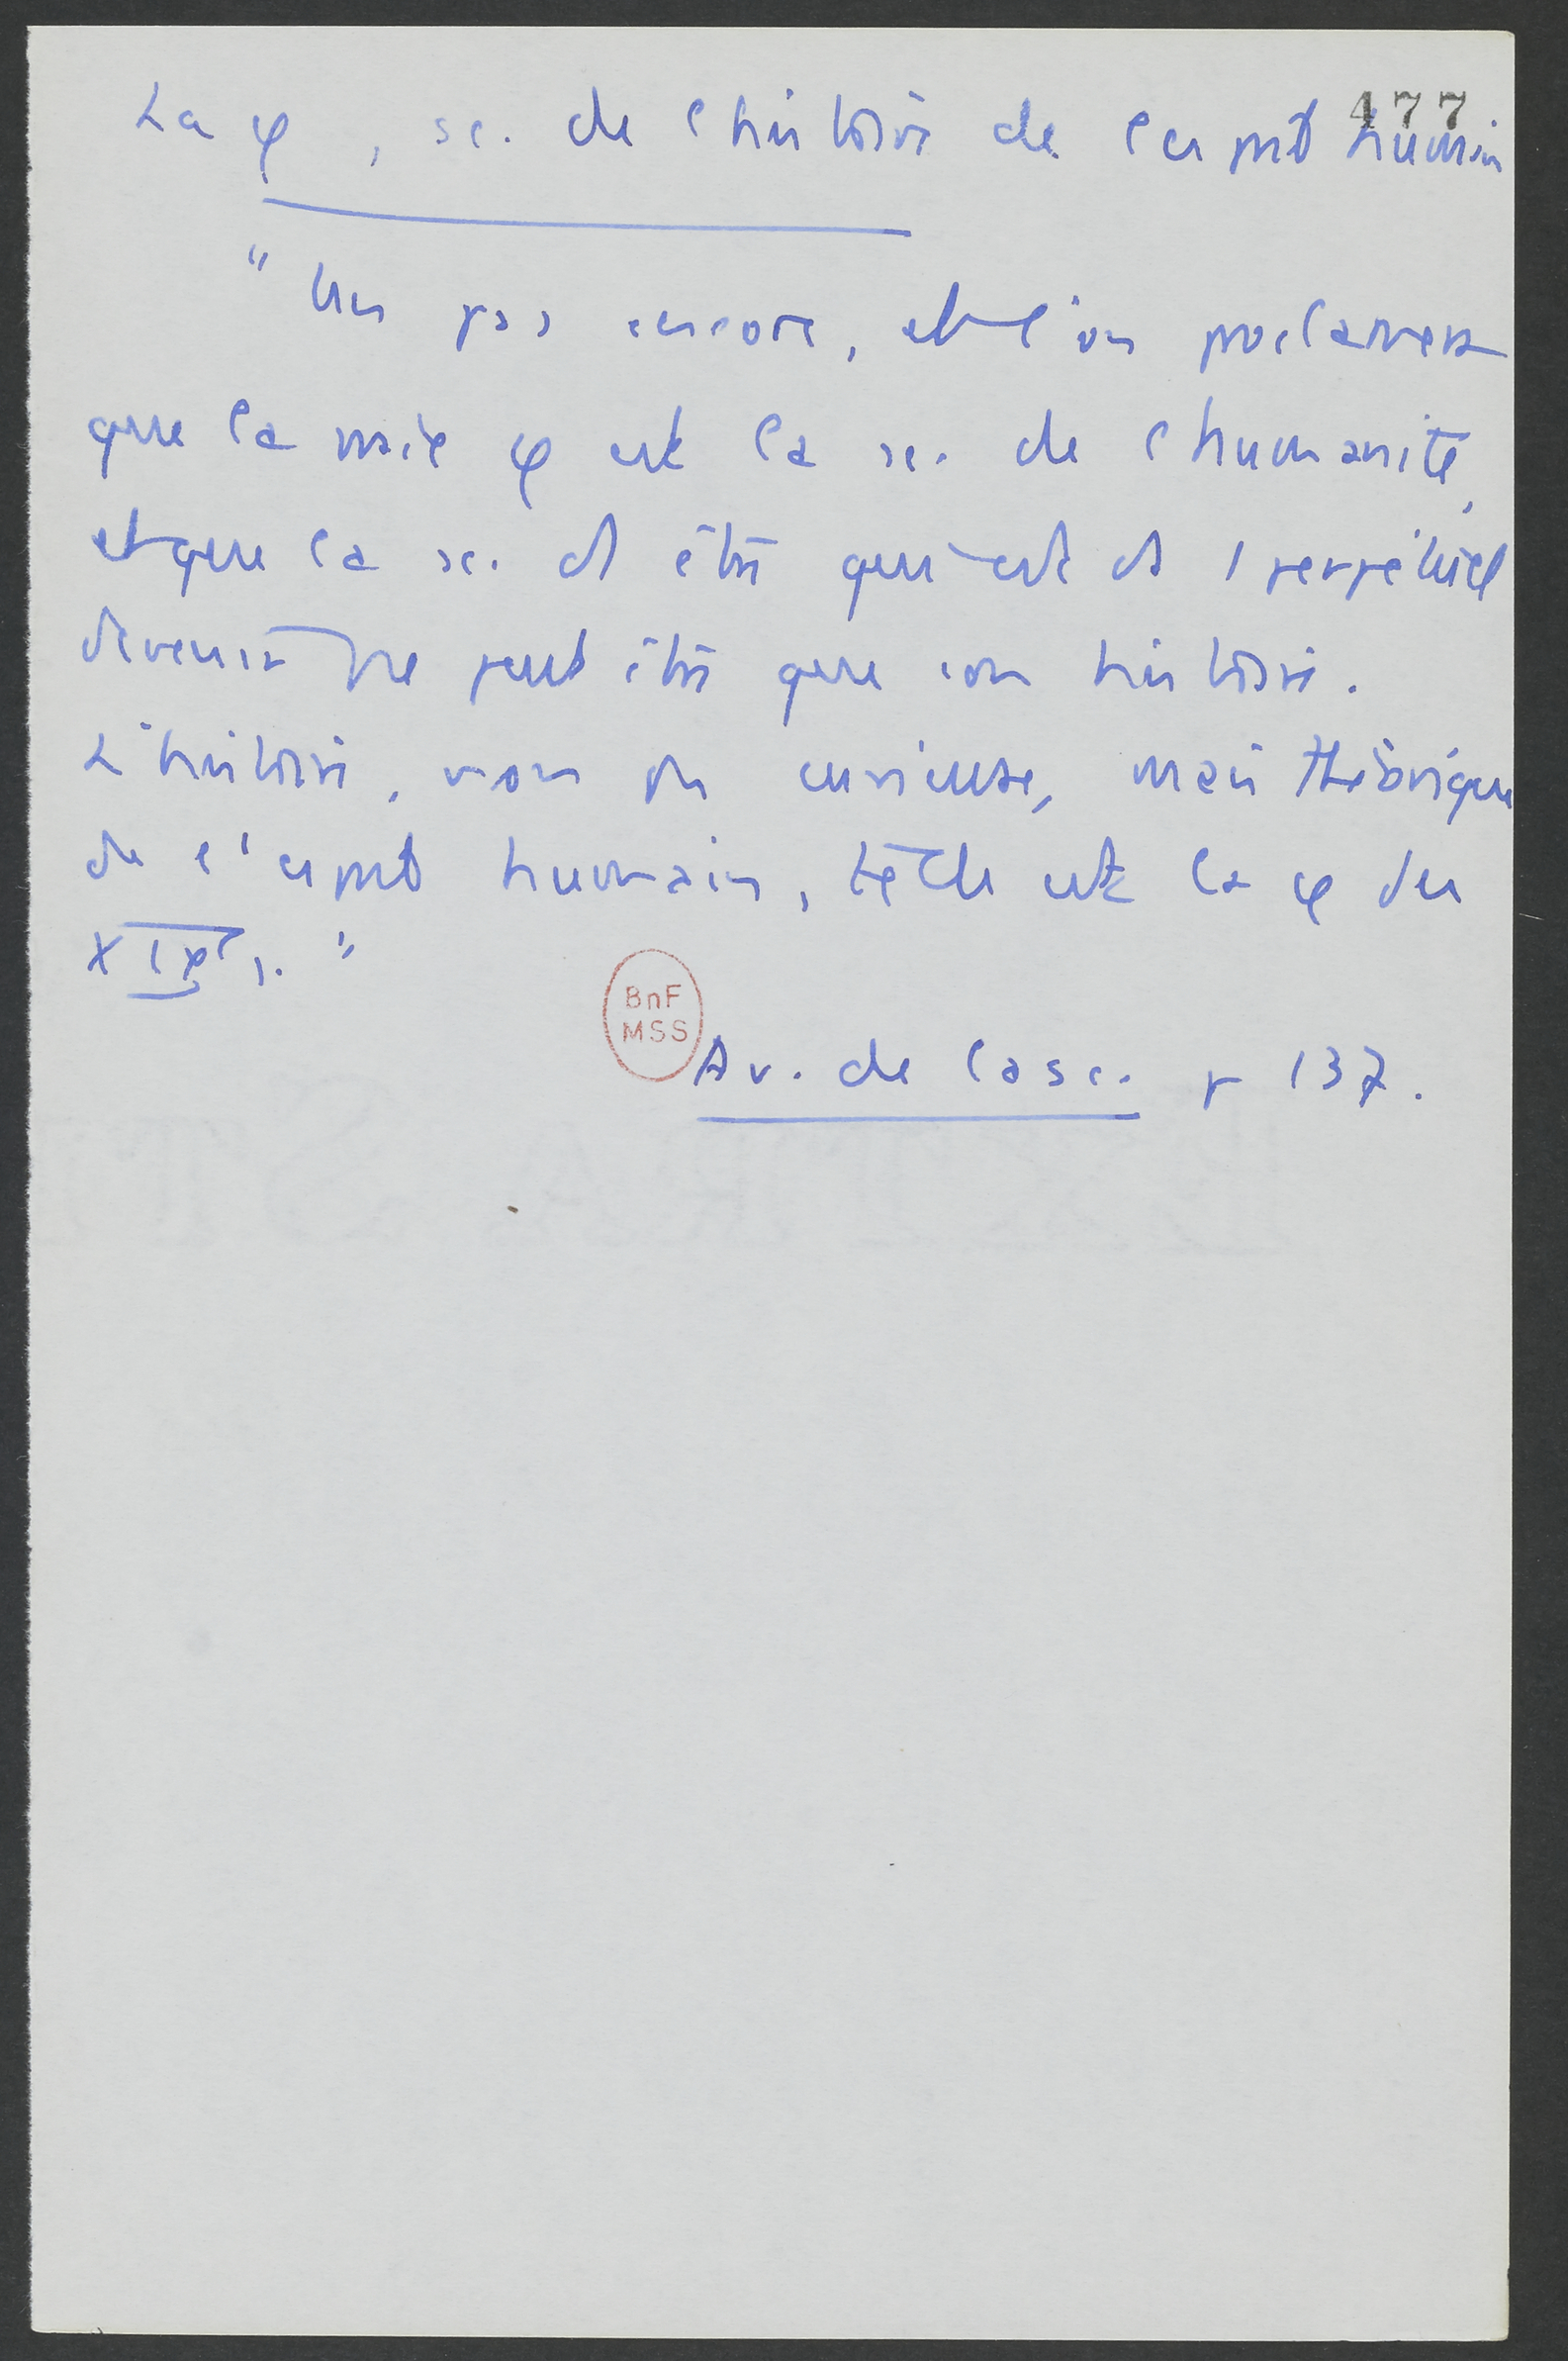 477
La φ, sc. de l'histoire de l'esprit humain
"Un pas encore, et l'on proclamera
que la vraie φ est la sc. de l'humanité,
et que la sc. d'1 être qui est ds 1 perpétuel
devenir ne peut être que son histoire.
L'histoire, non pas curieuse, mais théorique
de l'esprit humain, telle est la φ du
XIXe s."
BnF
MSS
Av. de la sc. p 137.